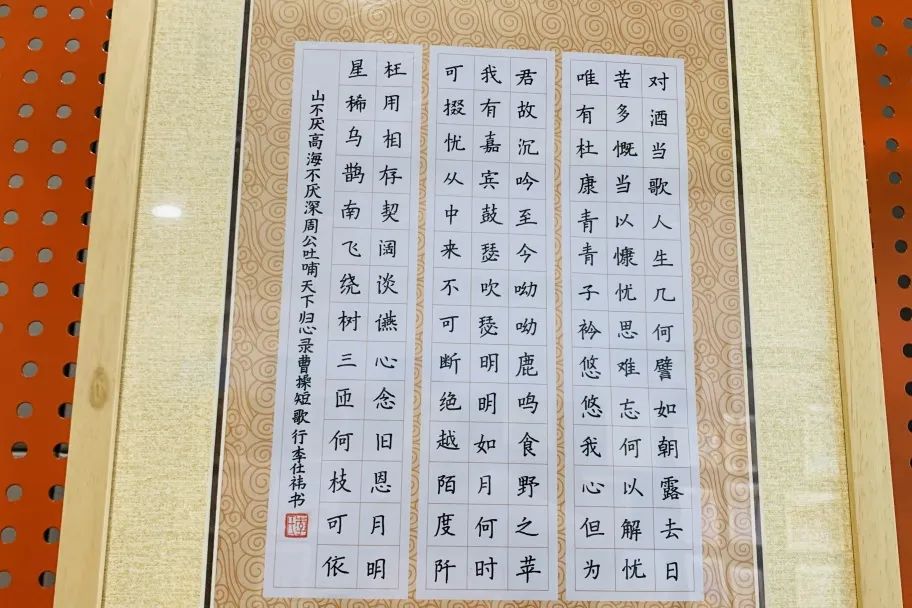 对酒当歌人生几何譬如朝露去日
苦多慨当以慷忧思难忘何以解忧
唯有杜康青青子衿悠悠我心但为
君故沉吟至今呦呦鹿鸣食野之苹
我有嘉宾鼓瑟吹明明如月何时
可掇忧从中来不可断绝越陌度阡
枉用相存契阔谈䜩心念旧恩月明
星稀乌鹊南飞绕树三匝何枝可依
山不厌高海不厌深周公吐哺天下归心录曹操短歌行李仕祎书